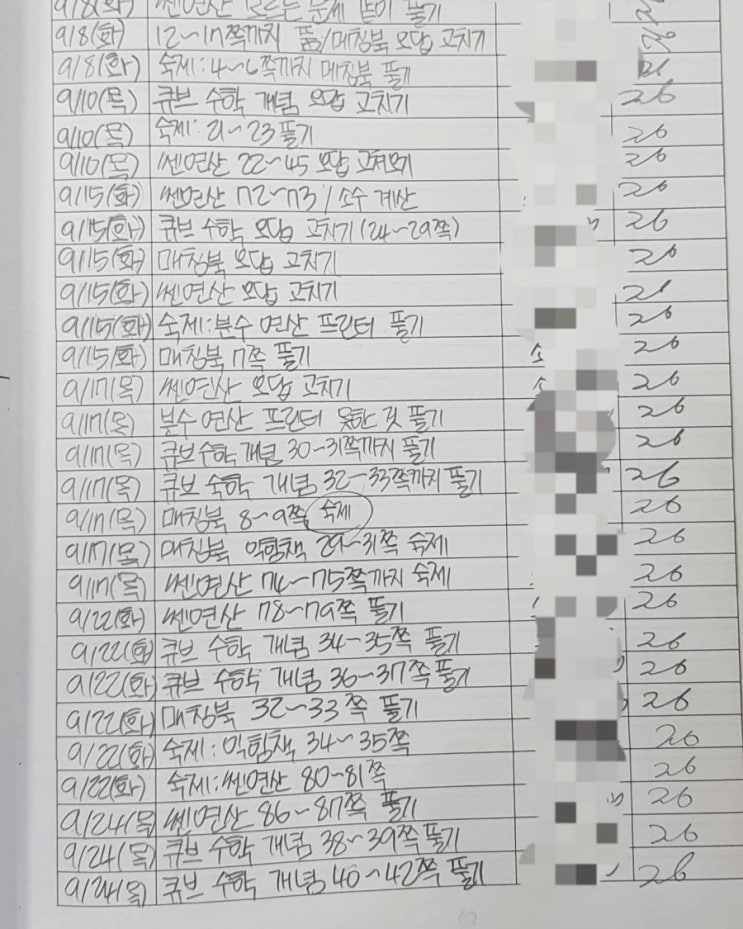 9/8(화) 쎈연산 모르는 문제 같이 풀기
9/8(화) 12~17쪽까지 풂/매칭북 오답 고치기 26
9/8(화) 숙제: 4~6쪽까지 매칭북 풀기 26
9/10(목) 큐브 수학 개념 오답 고치기 26
9/10(목) 숙제: 21~23 풀기 26
9/10(목) 쎈연산 22~45 오답 고쳐오기 26
9/15(화) 쎈연산 72~73 / 소수 계산 26
9/15(화) 큐브 수학 오답 고치기 (24~29쪽) 26
9/15(화) 매칭북 오답 고치기 26
9/15(화) 쎈연산 오답 고치기 26
9/15(화) 숙제: 분수 연산 프린터 풀기 26
9/15(화) 매칭북 7쪽 풀기 26
9/17(목) 쎈연산 오답 고치기 26
9/17(목) 분수 연산 프린터 못한 것 풀기 26
9/17(목) 큐브 수학 개념 30~31쪽까지 풀기 26
9/17(목) 큐브 수학 개념 32~33쪽까지 풀기 26
9/17(목) 매칭북 8~9쪽 숙제 26
9/17(목) 매칭북 익힘책 29~31쪽 숙제 26
9/17(목) 쎈연산 74~75쪽까지 숙제 26
9/22(화) 쎈연산 78~79쪽 풀기 26
9/22(화) 큐브 수학 개념 34~35쪽 풀기 26
9/22(화) 큐브 수학 개념 36~37쪽 풀기 26
9/22(화) 매칭북 32~33쪽 풀기 26
9/22(화) 숙제: 익힘책 34~35쪽 26
9/22(화) 숙제: 쎈연산 80~81쪽 26
9/24(목) 쎈연산 86~87쪽 풀기 26
9/24(목) 큐브 수학 개념 38~39쪽 풀기 26
9/24(목) 큐브 수학 개념 40~42쪽 풀기 26